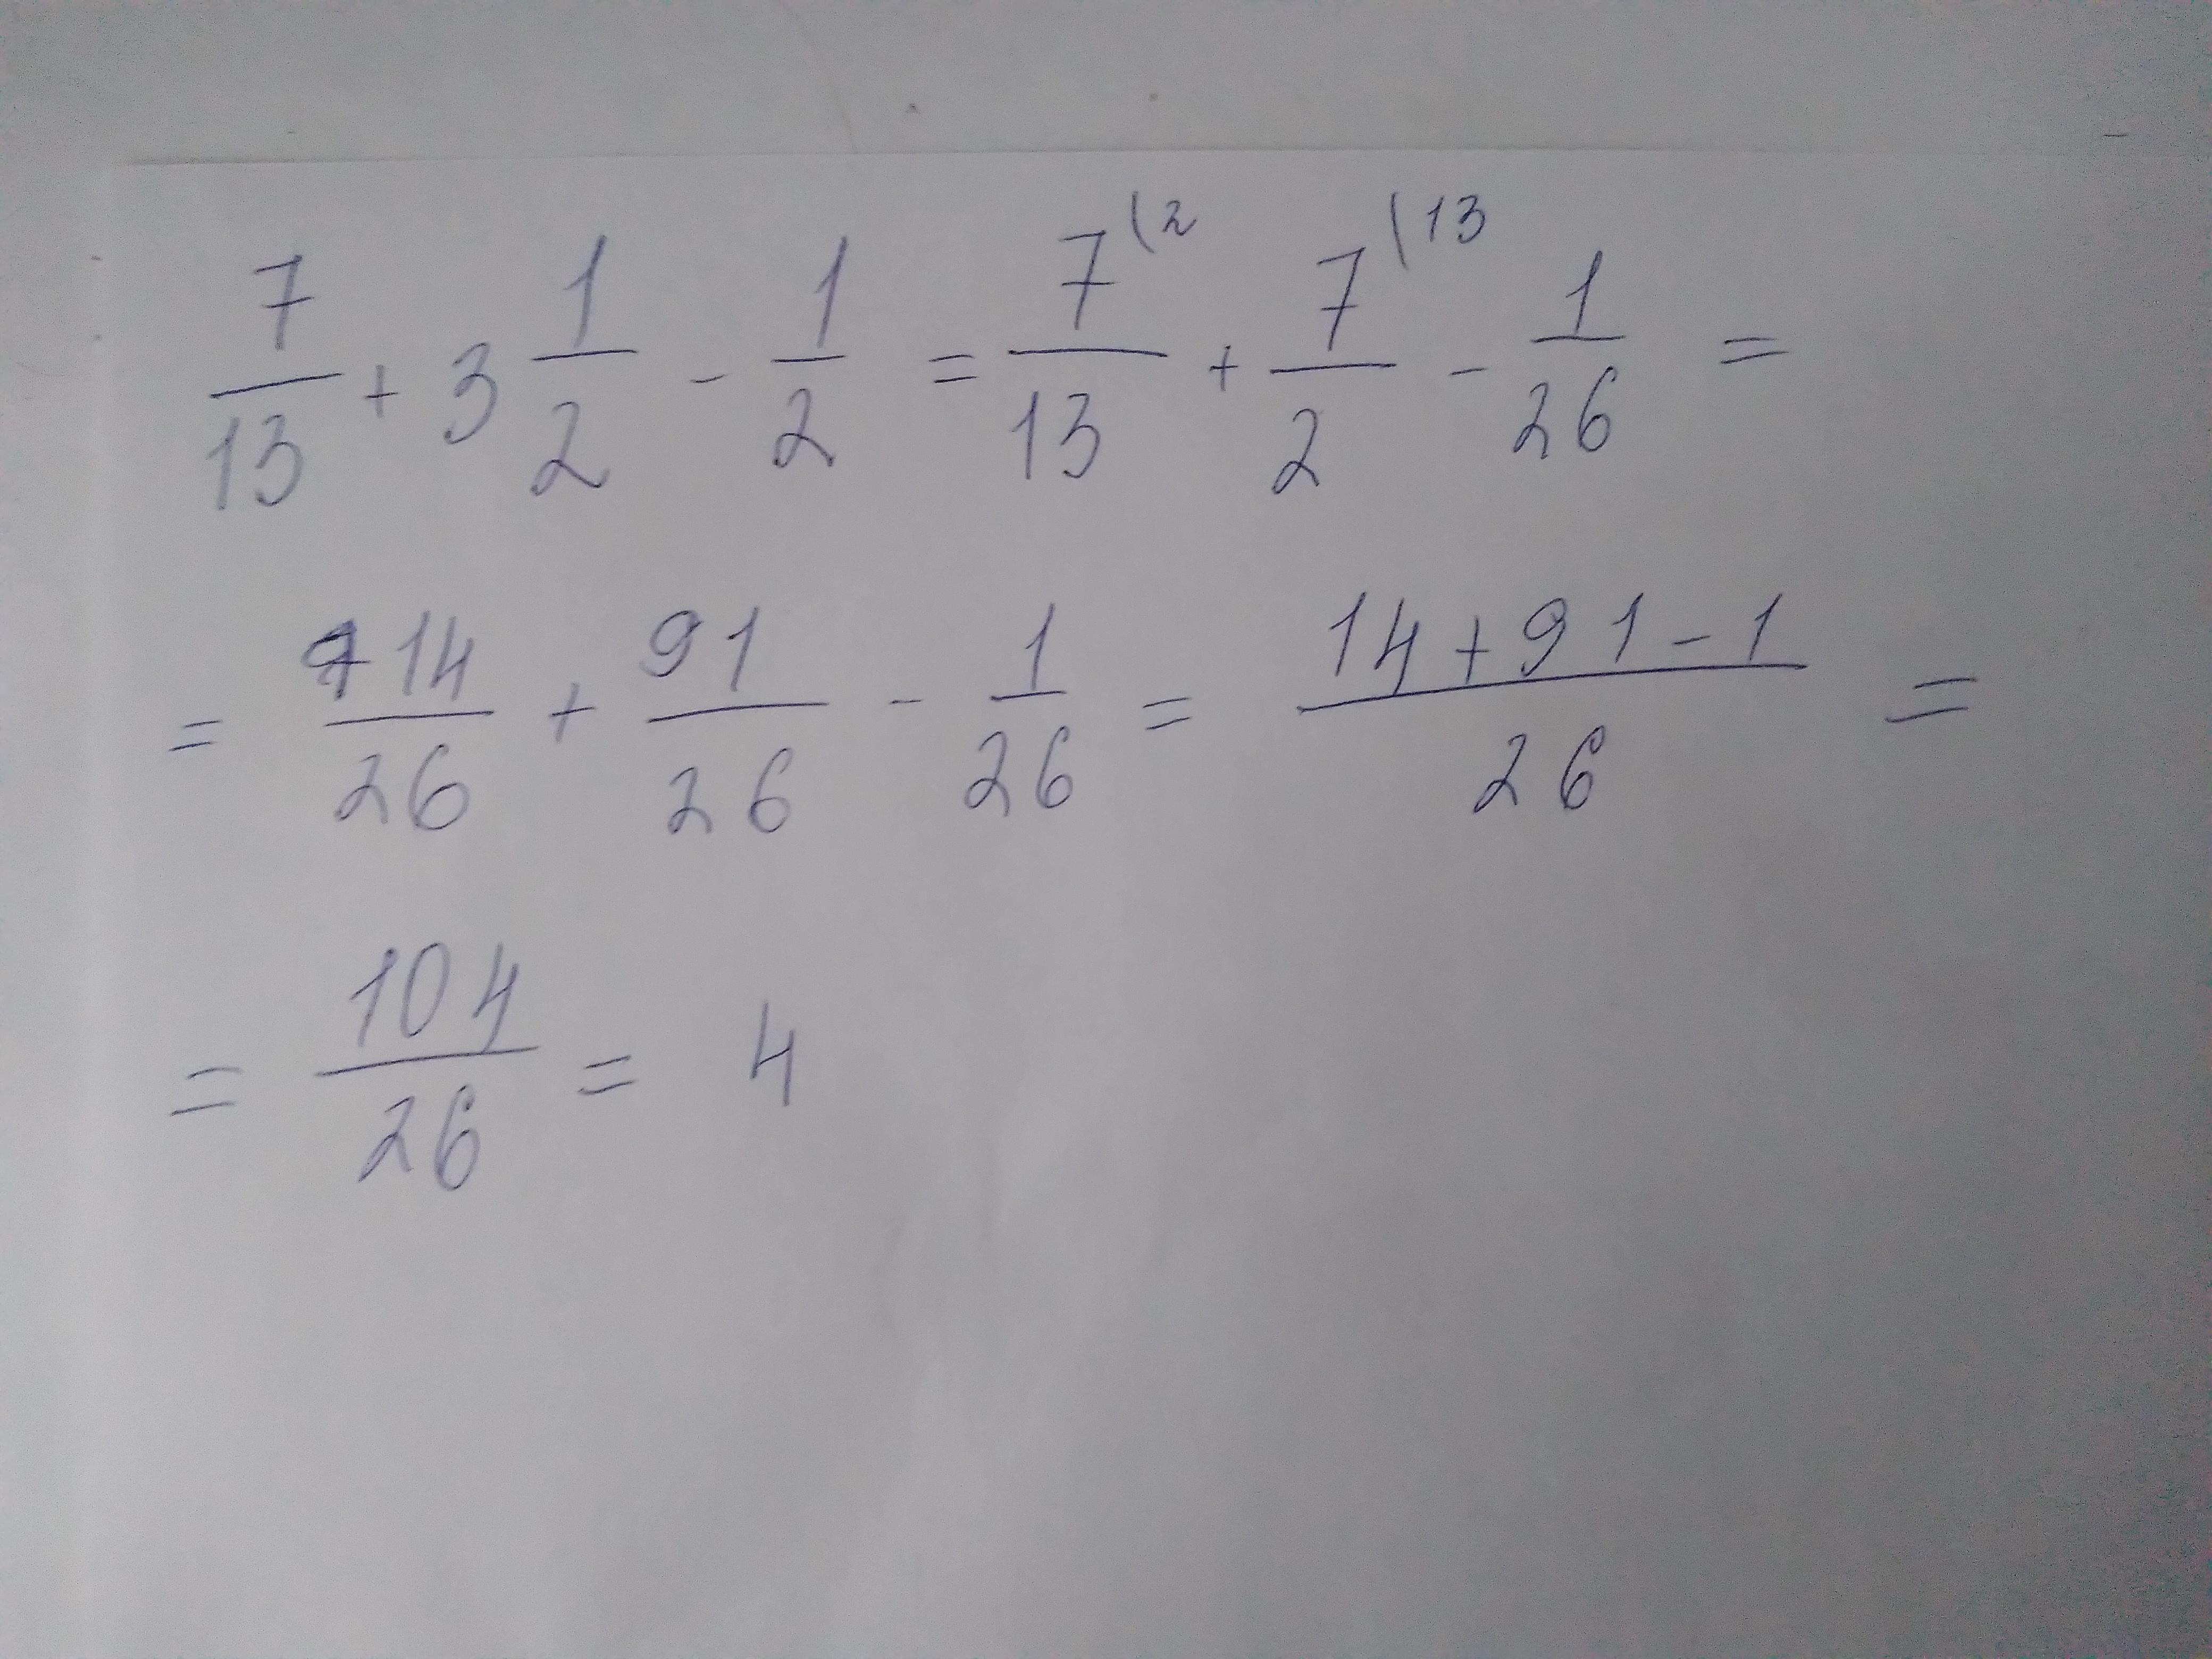 7/13 + 3 1/2 - 1/2 = 7\2/13 + 7\13/2 - 1/26 =
= 14/26 + 91/26 - 1/26 = 14+91-1/26 =
= 104/26 = 4